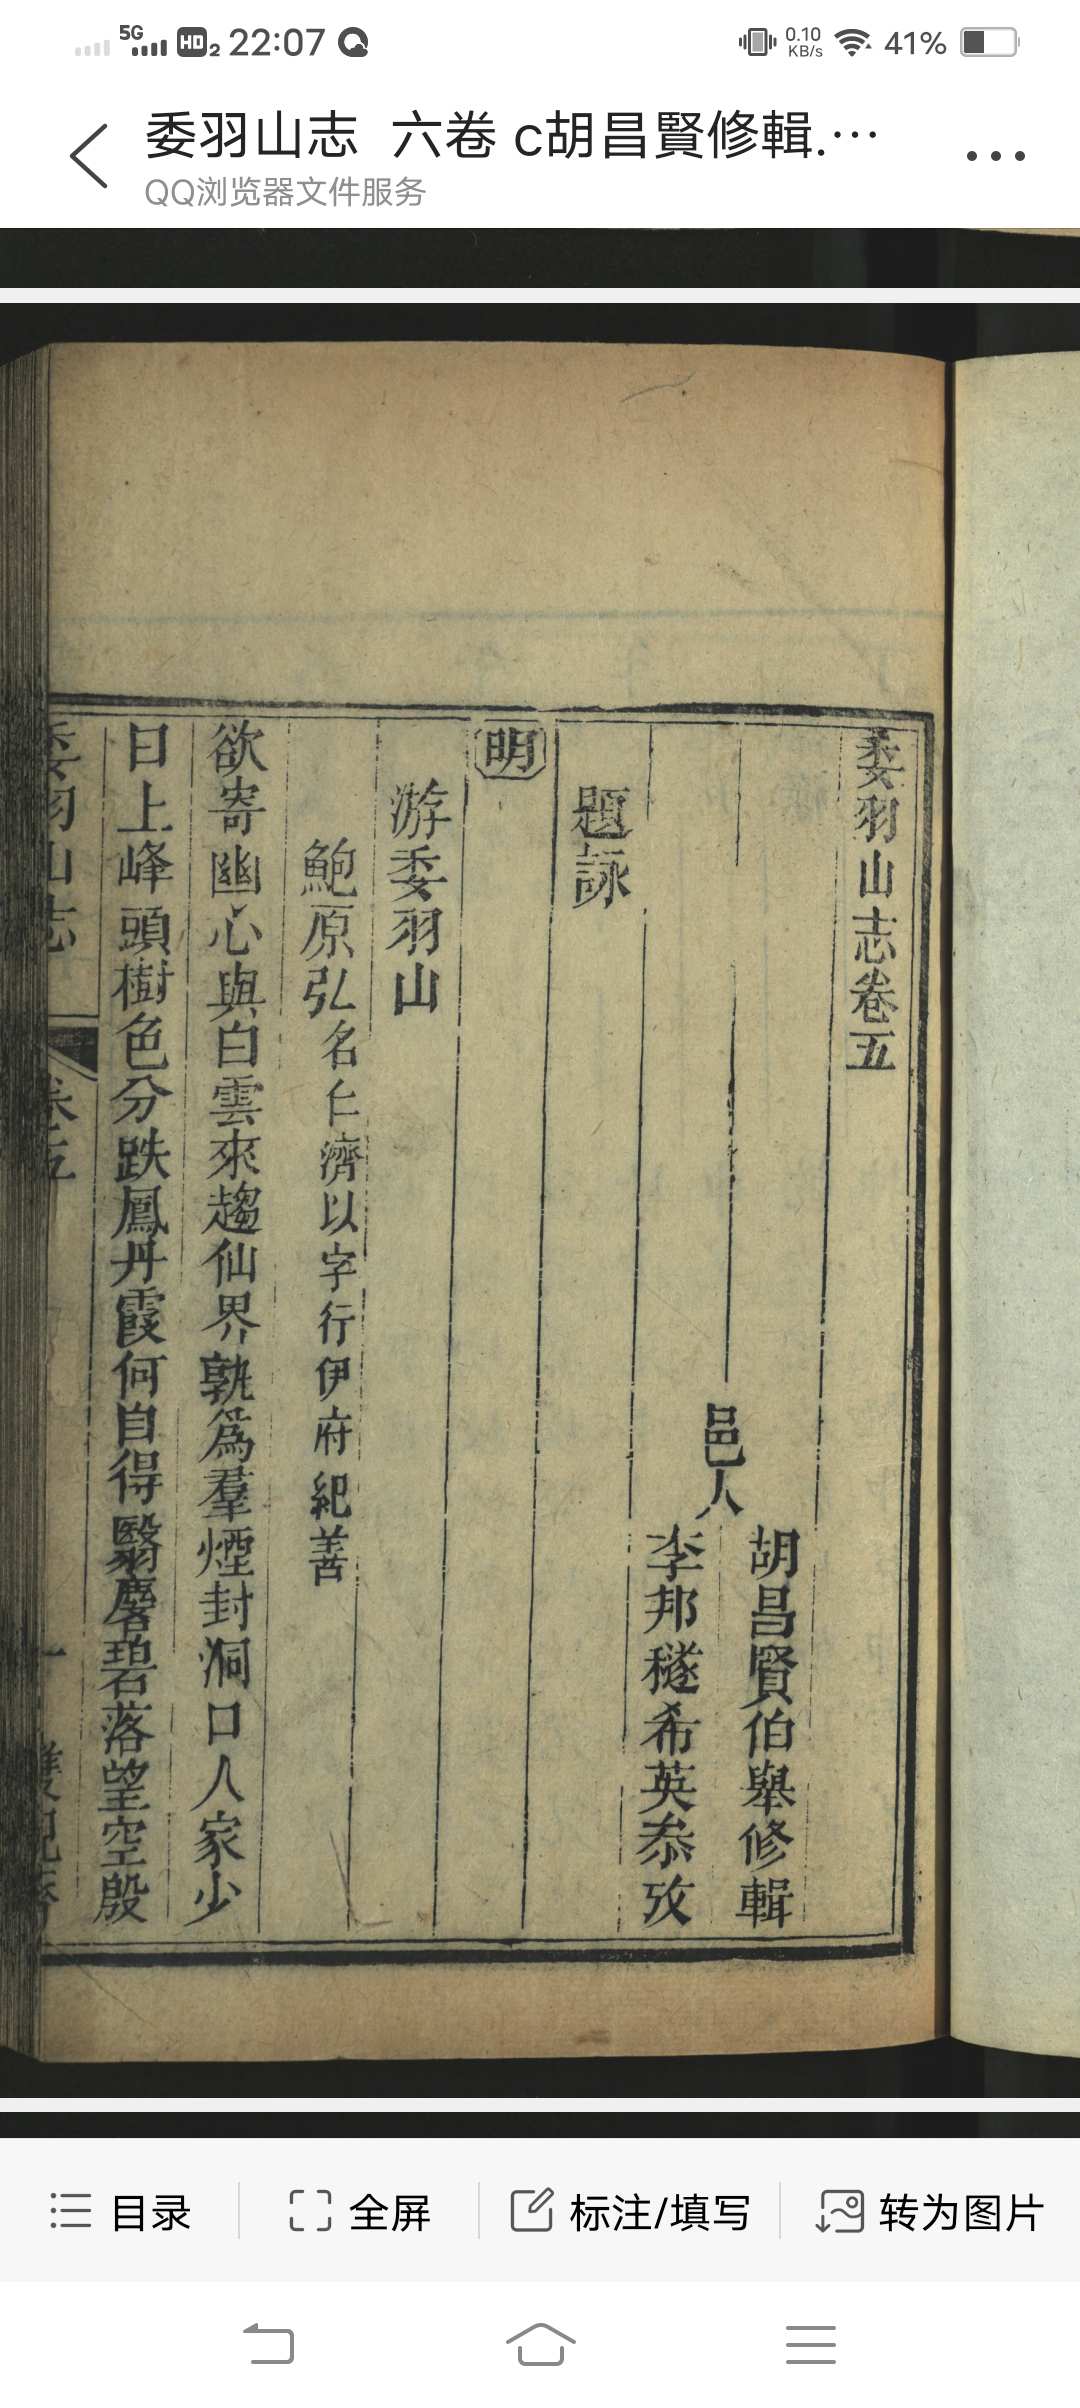 5G HD 2 22:07 0.10 KB/s 41%
委羽山志 六卷 c胡昌賢修輯.…
QQ浏览器文件服务
委羽山志卷五
胡昌賢伯舉修輯
邑人
李邦穟希英叅攷
題詠
明
游委羽山
鮑原弘名仁濟以字行伊府紀善
欲寄幽心與白雲來趨仙界孰為羣煙封洞口人家少
日上峰頭樹色分跌鳳丹霞何自得翳麐碧落望空殷
委羽山志
一
目录
全屏
标注/填写
转为图片